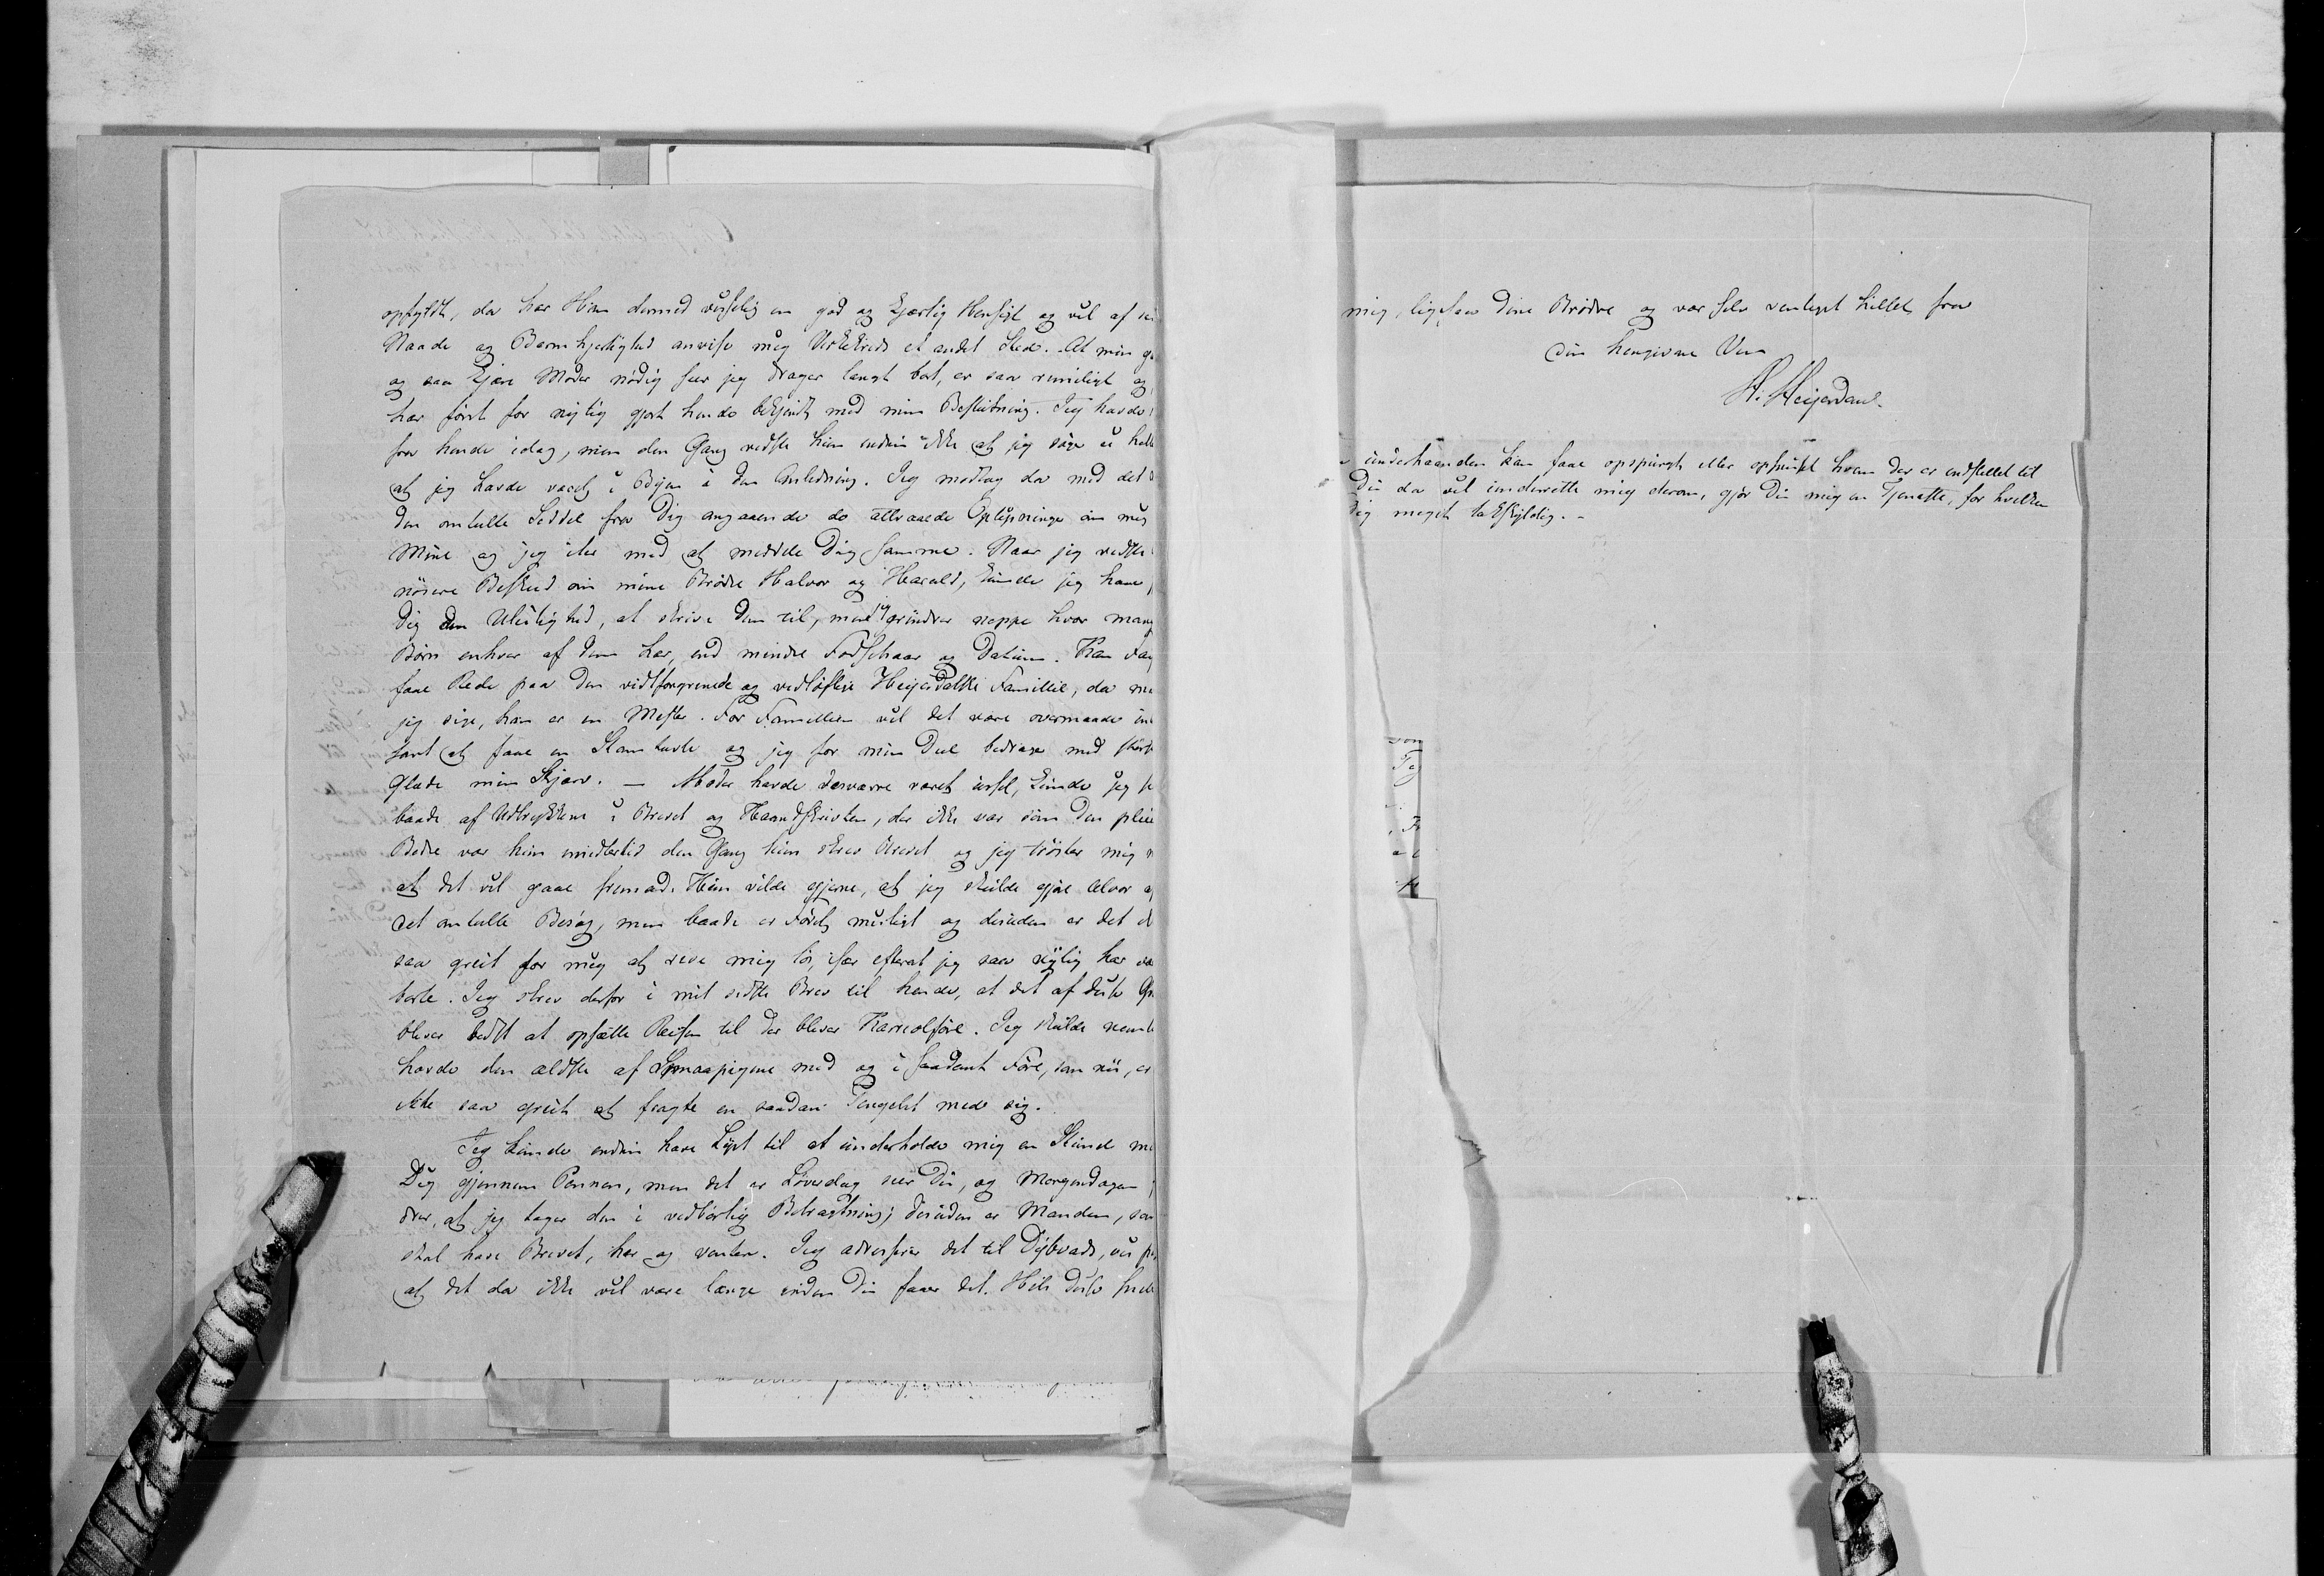 opfyldt, da har Han dermed visselig en god og kjærlig Hensigt og vil af
Naade og Barmhjertighed anvise mig Virkekreds et andet Sted. At min
og saa kjære Moder nødig seer jeg drager langt bort, er saa rimeligt og
har først for nylig gjort hende bekjendt med min Beslutning. Jeg havde
fra hende idag, men den Gang vidste hun endnu ikke at jeg
at jeg havde været i Byen i den Anledning. Jeg modtog da med det
den omtalte Seddel fra Dig angaaende de attraaede Oplysninger om mig
Mine og jeg iler med at meddele Dig samme. Naar jeg vidste
nöiere Beskeed om mine Brödre Halvor og Harald, kunde jeg have
Dig den Uleilighed, at skrive dem til, men jeg erindrer neppe hvor mang
Börn enhver af dem har, end mindre Födselsaar og Datum. Kan
faae Rede paa den vidtforgrenede og vidtløftige Heijerdalske Familie, da
jeg sige, han er en Mester. For Familien vil det være overmaade in
sant at faae en Stamtavle og jeg for min Deel bidrage med størst
Glæde min Skjærv. — Moder havde desværre været
baade af Udtrykkene i Brevet og Haandskriften, der ikke var som den pleie
Bedre var hun imidlertid den Gang hun skrev Brevet og jeg tröster mig
at det vil gaae fremad. Hun vilde gjerne, at jeg skulde gjøre Alvor af
det omtalte Besøg, men baade er Föret misligt og desuden er det
saa greit for mig at rive mig lös, især efterat jeg saa nylig har
borte. Jeg skrev derfor i mit sidste Brev til hende, at det af disse
bliver bedst at opsætte Reisen til der bliver Karriolföre. Jeg skulde neml
havde den ældste af Smaapigene med og i saadant Före, som nu, er
ikke saa greit at fragte en saadan med sig.
Jeg kunde endnu have Lyst til at underholde mig en Stund
Dig gjennem Pennen, men det er Löverdag seer Du, og Morgendagen
drer, at jeg tager den i vedbörlig Betragtning; desuden er Manden, som
skal have Brevet, her og venter. Jeg adresserer det til Dybvads,
at det da ikke vil være længe inden Du faaer det. Hils disse
mig, ligesaa dine Brödre og vær selv venligst hilset fra
din hengivne Ven
H. Heijerdahl.
underhaanden kan faae opspurgt eller opsnuset hvem der er indstillet til
Du da vil underrette mig derom, gjör Du mig en Tjeneste, for hvilken
Dig meget takskyldig. -